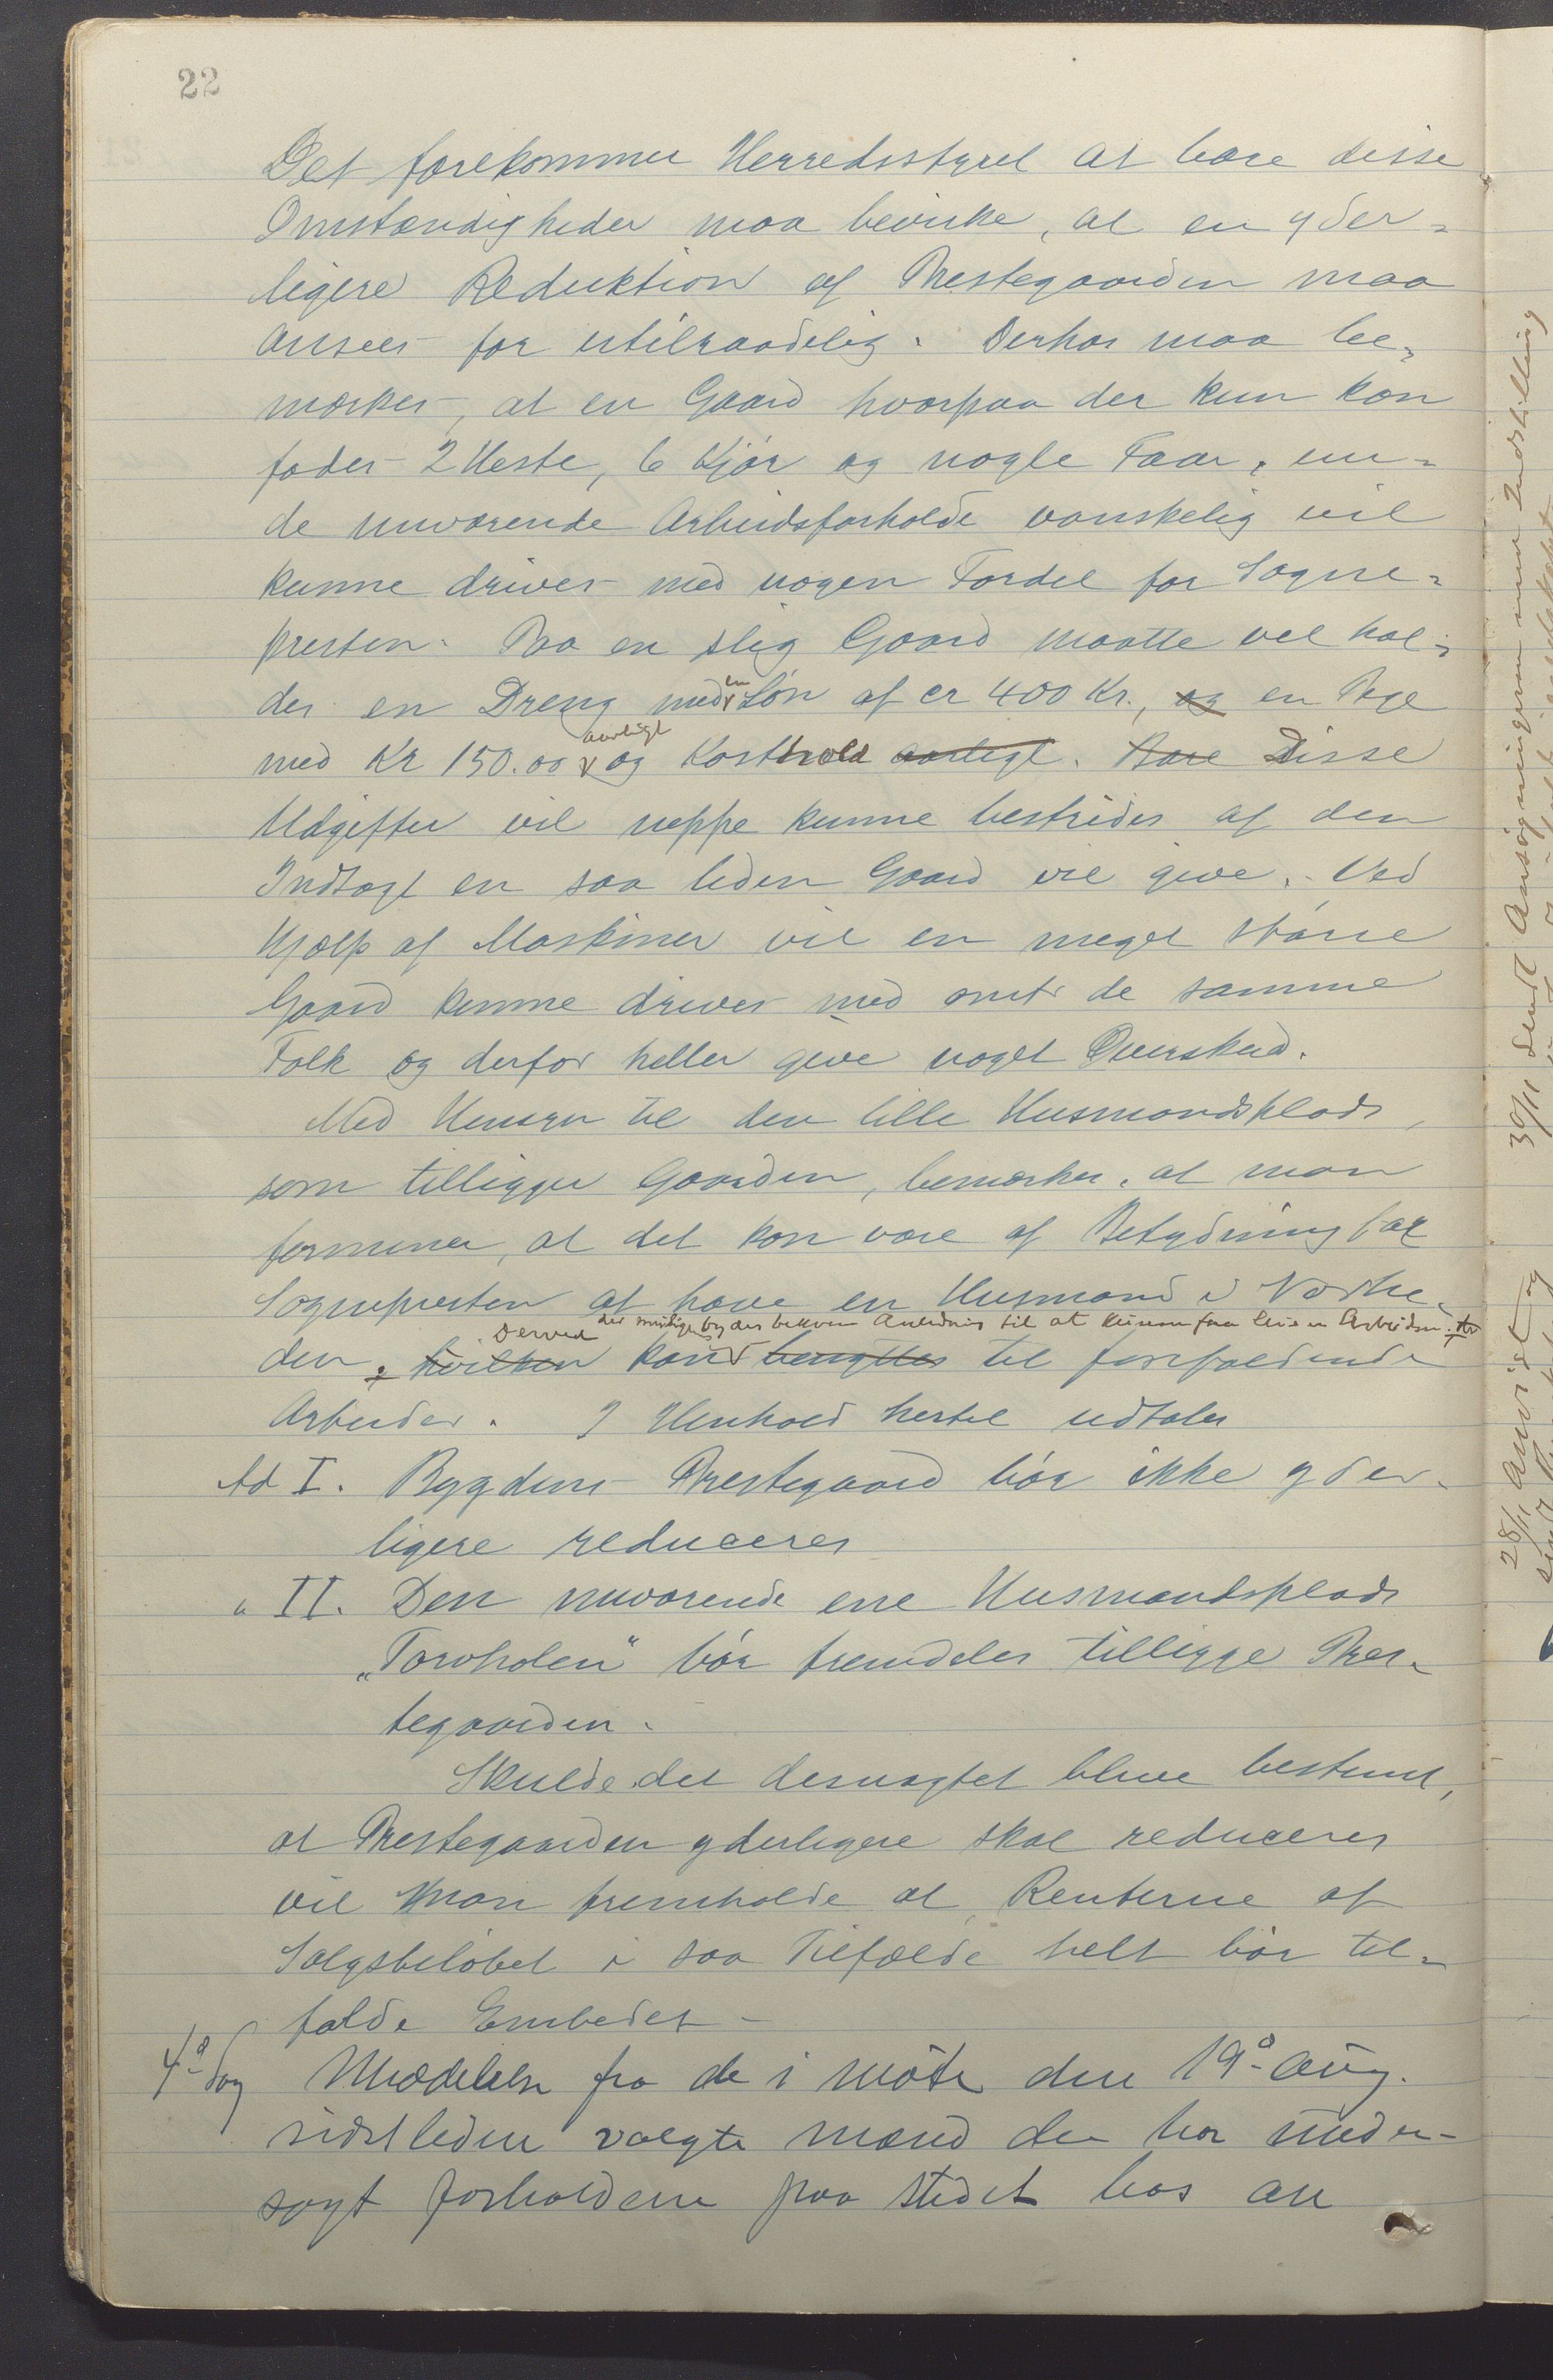 22
Det forekommer Herredsstyret at bare disse
Omstændigheder maa bevirke, at en yder-
ligere Reduktion af Prestegaarden maa
ansees for utilraadelig. Derhos maa be-
merkes, at en Gaard hvorpaa der kun kan
fødes 2 Heste, 6 Kjør og nogle Faar, un-
de nuværende Arbeidsforholde vanskelig vil
kunne drives med nogen Fordel for Sogne-
presten. Paa en slig Gaard maatte vel hol-
des en Dreng med en Løn af cr 400 Kr., og en Pige
med Kr 150.00 aarligt og Kosthold aarligt. Bare Disse
Udgifter vil neppe kunne bestrides af den
Indtægt en saa liden Gaard vil give. Ved
Hjælp af Maskiner vil en meget større
Gaard kunne drives med omtr de samme
Folk og derfor heller give noget Overskud.
Med Hensyn til den lille Husmandsplads,
som tilligger Gaarden, bemærkes, at man
formener, at det kan være af Betydning for
Sognepresten at have en Husmand i Nærhe-
Derved der muligens bydes bekvem Anledning til at kunne faa leie en Arbeider
den, hvilken kand benyttes til forefaldende
Arbeider. I Henhold hertil udtales
Ad I. Bygdens Prestegaard bør ikke yder-
ligere reduceres
" II. Den nuværende ene Husmandsplads
"Torvholen" bør fremdeles tilligge Pres-
tegaarden.
Skulde det desuagtet blive bestemt,
at Prestegaarden yderligere skal reduceres
vil man fremholde at Renterne af
Salgsbeløbet i saa Tilfælde helt bør til-
falde Embedet -
4de Sag Meddelelse fra de i møte den 19de Aug.
sidstleden valgte mænd der har under-
søgt forholdene paa stedet hos an
30/11 Sendt Ansøgningerne med Indstilling
28/11 Anvist og